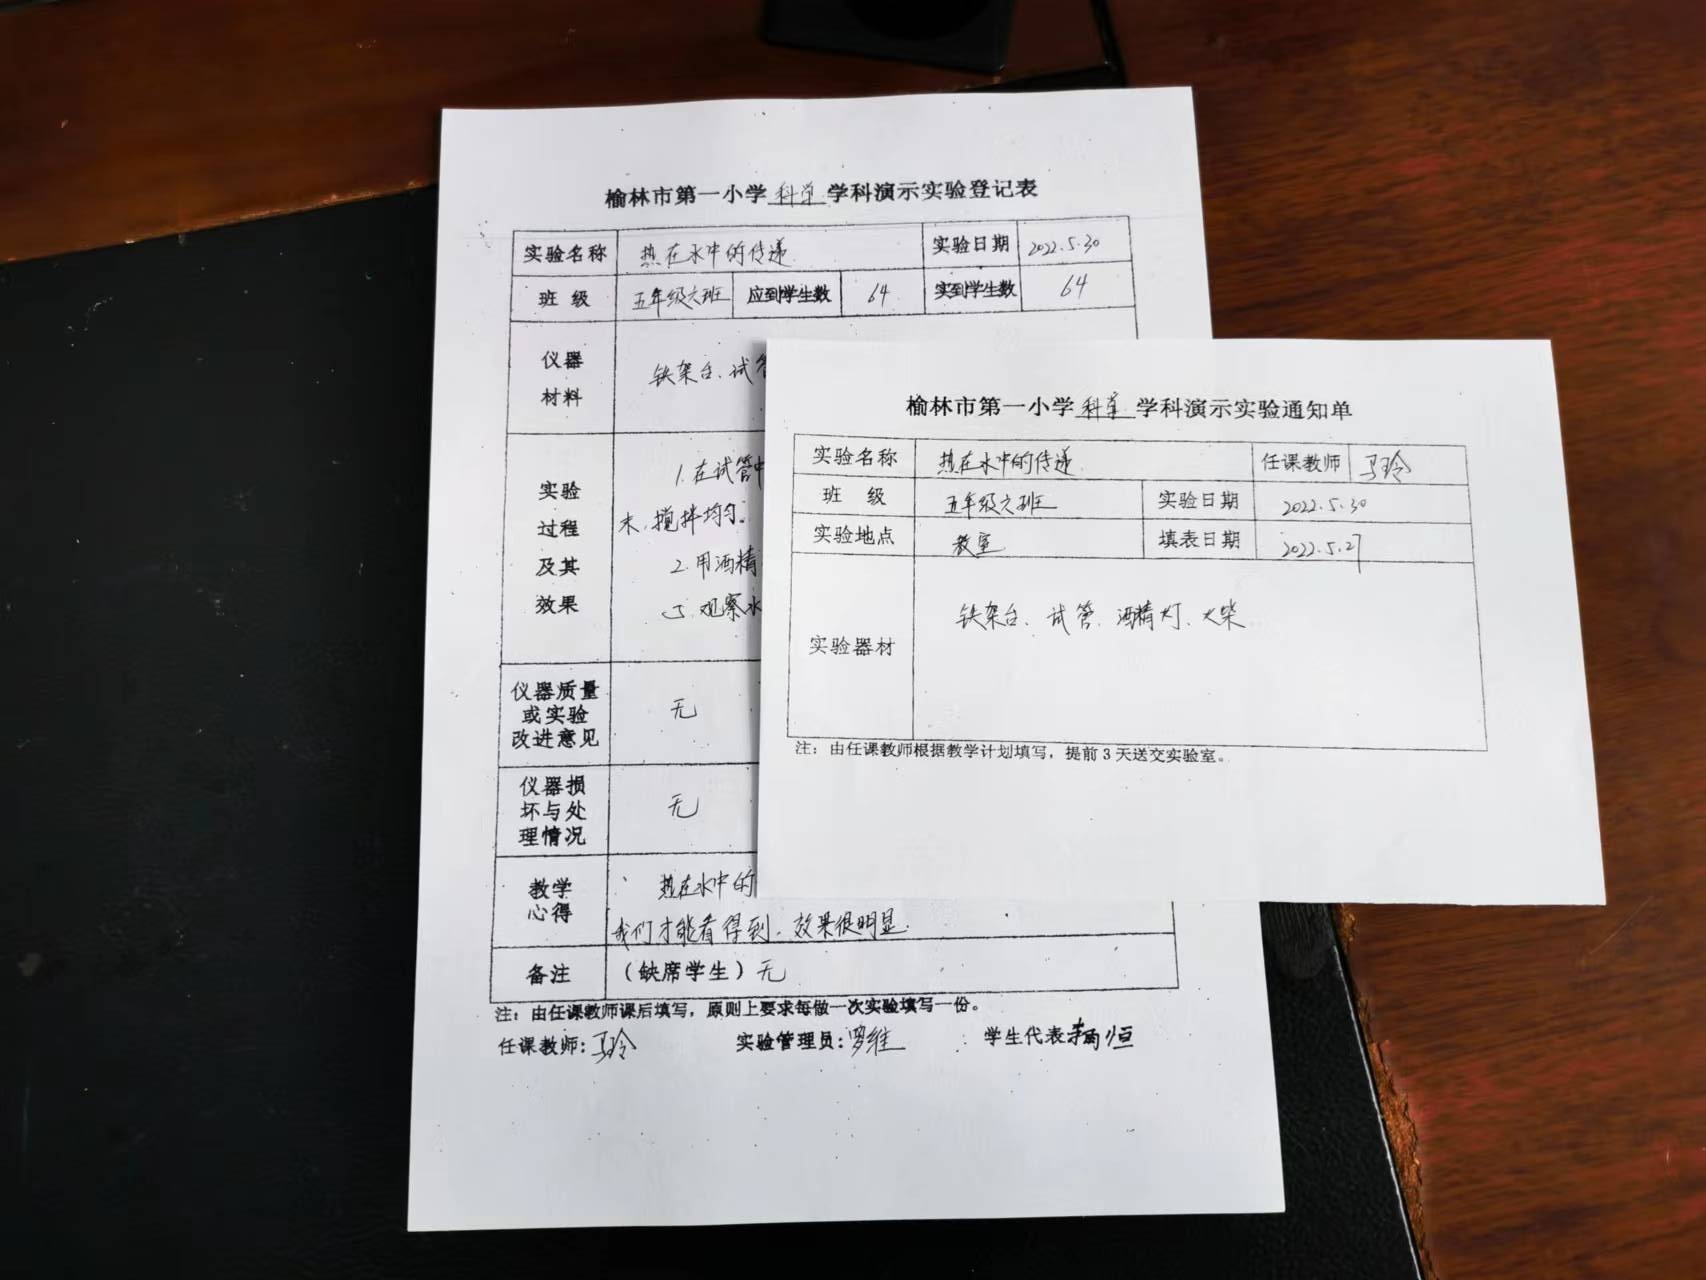 榆林市第一小学 科学 学科演示实验登记表
实验名称 热在水中的传递 实验日期 2022.5.30
班 级 五年级六班 应到学生数 64 实到学生数 64
仪器
材料
铁架台、试管
实验
过程
及其
效果
1.在试管中
末,搅拌均匀。
2.用酒精
3.观察水
仪器质量
或实验
改进意见
无
仪器损
坏与处
理情况
无
教学
心得
热在水中的
我们才能看得到,效果很明显.
备注 (缺席学生)无
注:由任课教师课后填写,原则上要求每做一次实验填写一份。
任课教师:马玲 实验管理员:罗维 学生代表
榆林市第一小学 科学 学科演示实验通知单
实验名称 热在水中的传递 任课教师 马玲
班 级 五年级六班 实验日期 2022.5.30
实验地点 教室 填表日期 2022.5.27
实验器材 铁架台、试管、酒精灯、火柴
注:由任课教师根据教学计划填写,提前3天送交实验室。